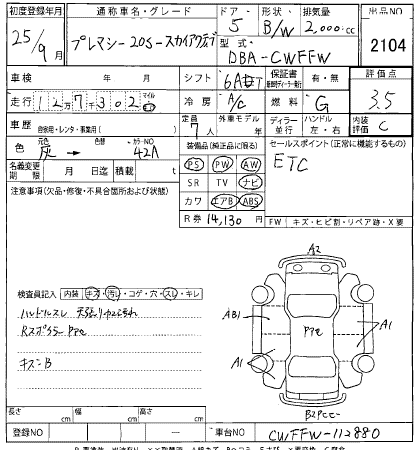 初度登録年月 通称車名・グレード ドア 形状 排気量 出品NO
25/9月 プレマシー20S-スカイアクティブ 5 B/W 2,000cc 2104
型式 DBA-CWFFW
車検 年 月 シフト 6AT 保証書 有・無 評価点
走行 12万7千302 マイル 冷房 A/C 燃料 G 3.5
車歴 自家用・レンタ・事業用( ) 定員 7人 外車モデル 年 ディーラー 並行 ハンドル 左・右 内装評価 C
色 元色 灰 → 色替 カラーNO 42A 装備品(純正品に限る) セールスポイント(正常に機能するもの)
名義変更期限 月 日迄 積載 t PS PW AW ETC
注意事項(欠品・修復・不具合箇所および状態) SR TV ナビ
カワ エアB ABS
R券 14,130円 FW キズ・ヒビ割・リペア跡・X要
A2
検査員記入 内装 キズ・汚レ・コゲ・穴・スレ・キレ
ハンドルスレ 天張り中にごれ AB1 Pペ A1
Rスポイラー Pペ
キズ=B A1
長さ cm 幅 cm 高さ cm
登録NO ー 車台NO CWFFW-112880